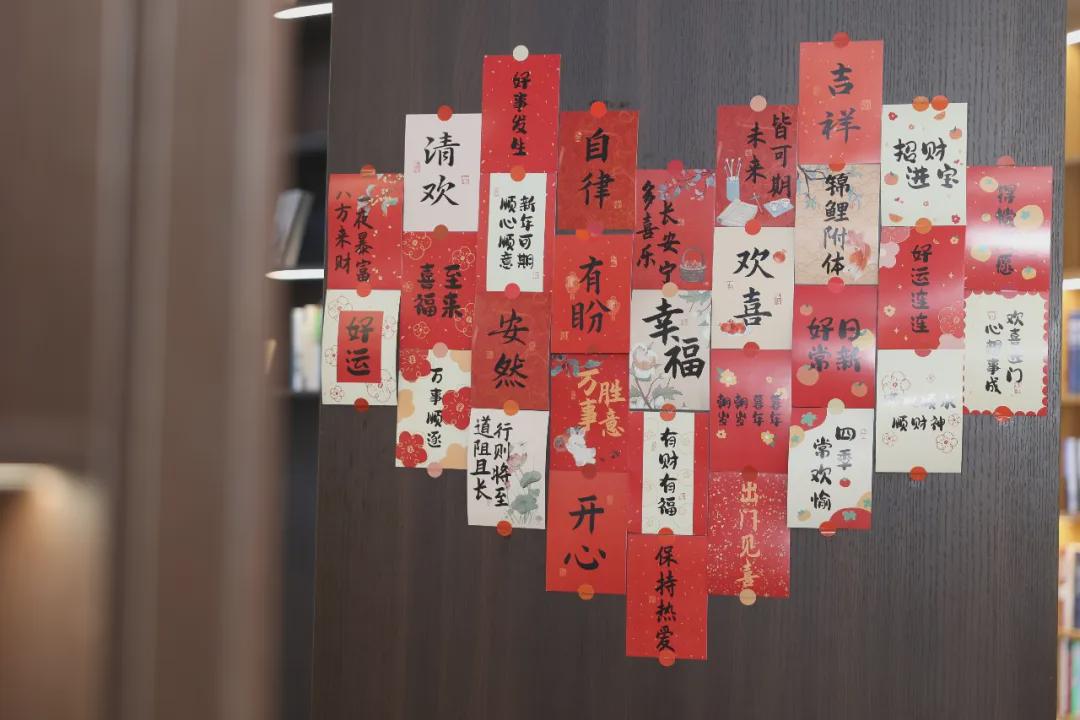 一夜暴富
八方来财
好运
清欢
喜至
福来
万事顺遂
好事发生
新年可期
顺心顺意
安然
道阻且长
行则将至
自律
有盼
万事
胜意
开心
多喜乐
长安宁
幸福
有财有福
保持热爱
未来
皆可期
欢喜
朝朝暮暮
岁岁年年
出门见喜
吉祥
锦鲤附体
好日
常新
四季
常欢愉
招财
进宝
好运连连
顺财神
欢喜进门
心想事成